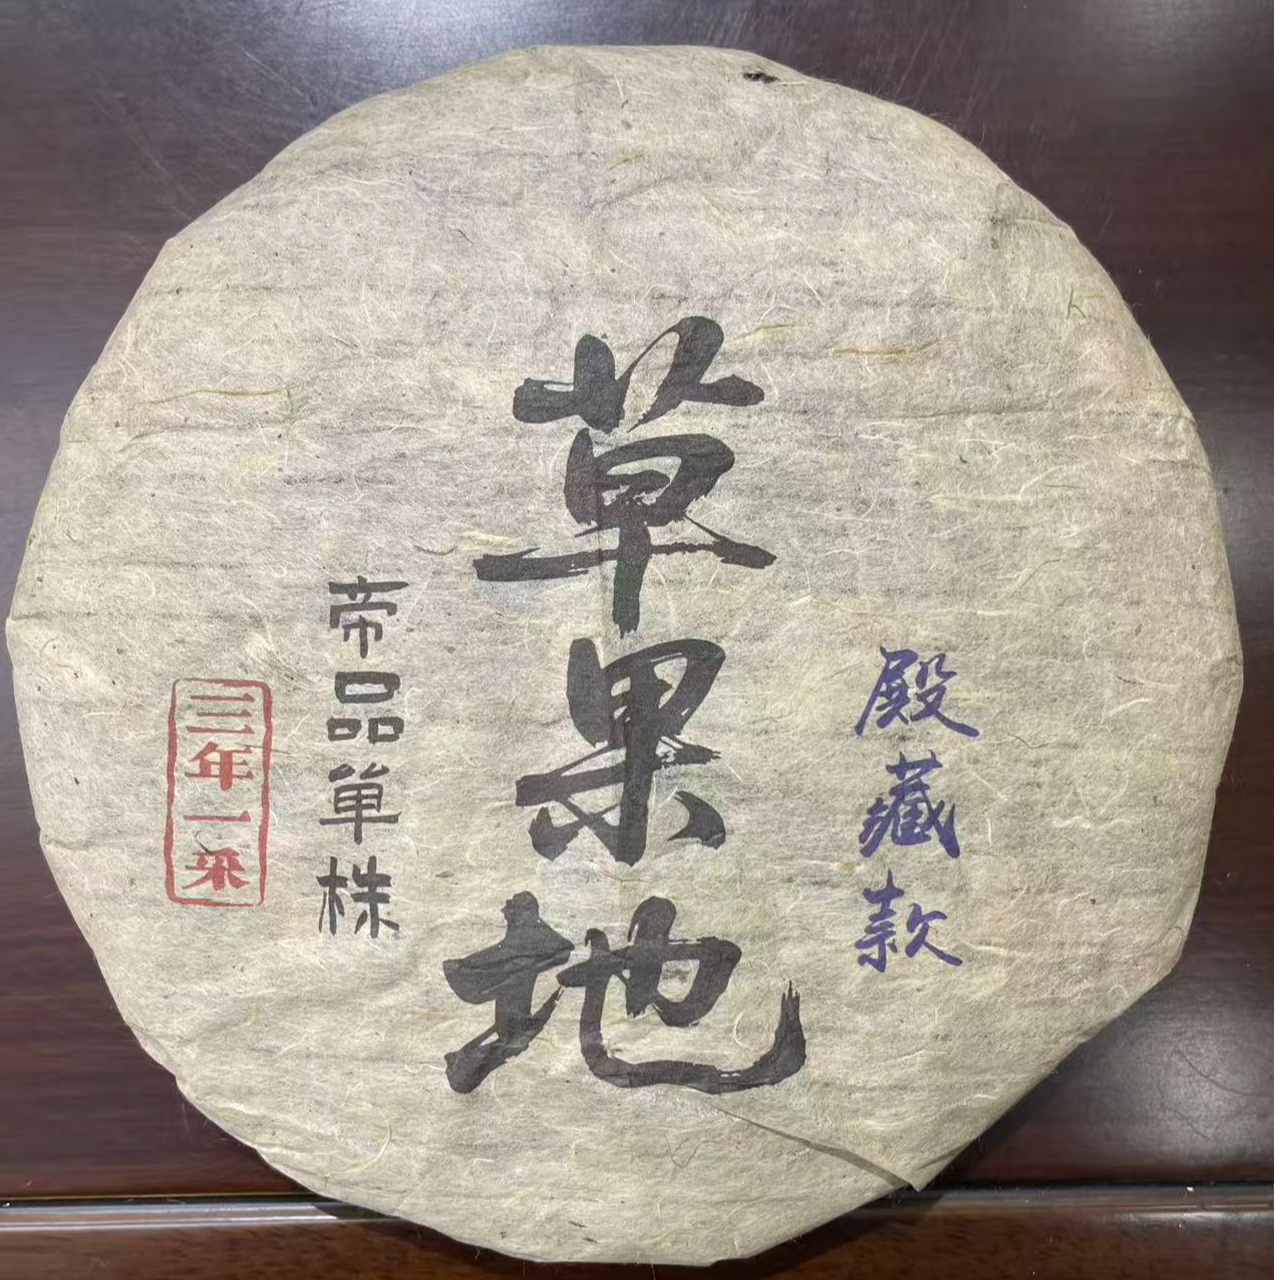 殿藏款
草果地
帝品单株
三年一采